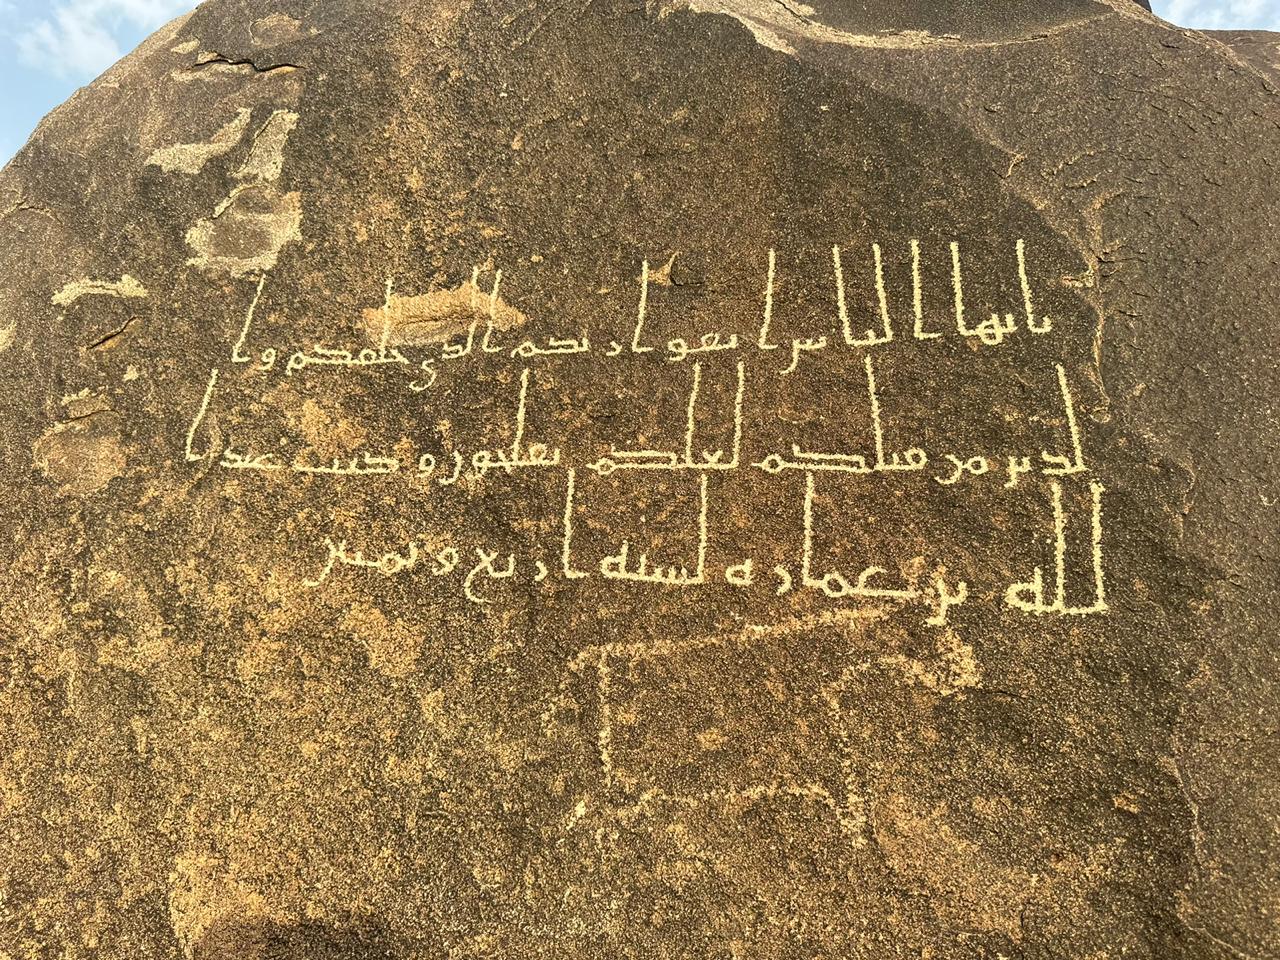 يايها الناس اتقوا ربكم الذي خلقكم وا
لذين من قبلكم لعلكم تفلحون وكتب عبد ا
لله بن عماره لسنه اربع وثمنين